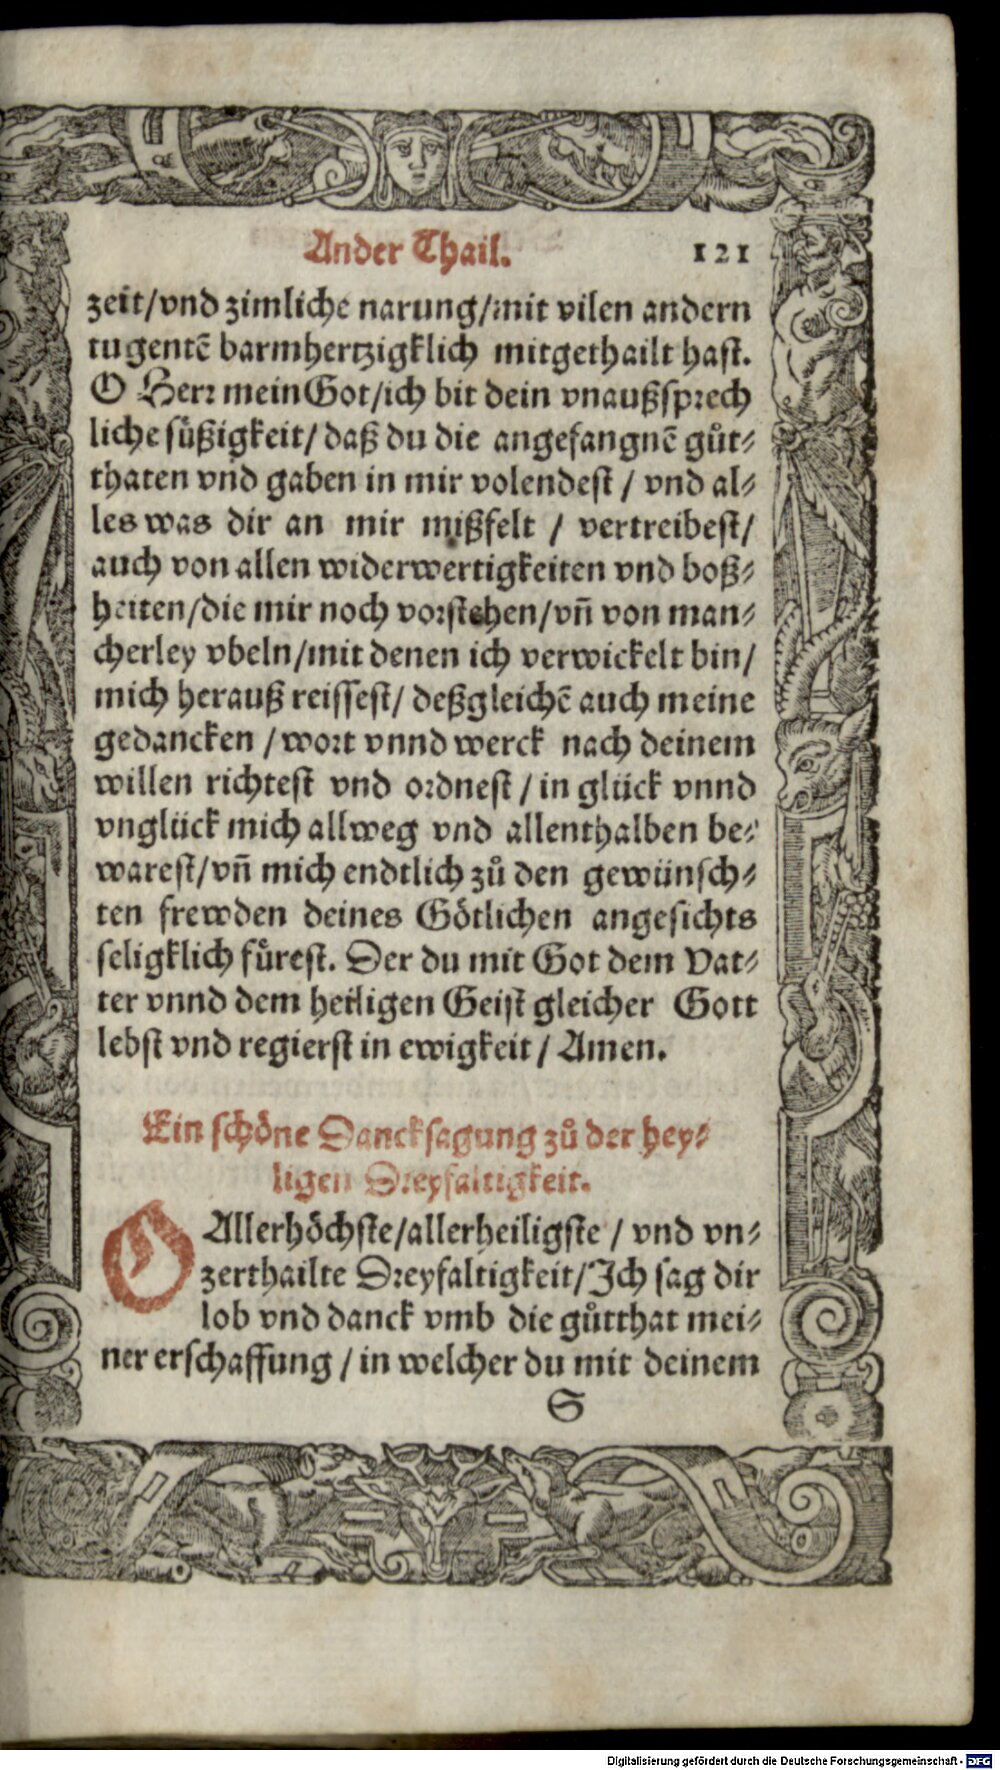 Ander Thail. 121
zeit/vnd zimliche narung/mit vilen andern
tugentẽ barmhertzigklich mitgethailt hast.
O Herr mein Got/ich bit dein vnaußsprech
liche süßigkeit/ daß du die angefangnẽ gůt-
thaten vnd gaben in mir volendest / vnd al-
les was dir an mir mißfelt / vertreibest/
auch von allen widerwertigkeiten vnd boß-
heiten/die mir noch vorstehen/vñ von man-
cherley vbeln/mit denen ich verwickelt bin/
mich herauß reissest/ deßgleichẽ auch meine
gedancken /wort vnnd werck nach deinem
willen richtest vnd ordnest / in glück vnnd
vnglück mich allweg vnd allenthalben be-
warest/vñ mich endtlich zů den gewünsch-
ten frewden deines Götlichen angesichts
seligklich fůrest. Der du mit Got dem Vat-
ter vnnd dem heiligen Geist gleicher Gott
lebst vnd regierst in ewigkeit / Amen.
Ein schöne Dancksagung zů der hey-
ligen Dreyfaltigkeit.
O Allerhöchste/allerheiligste / vnd vn-
zerthailte Dreyfaltigkeit/Ich sag dir
lob vnd danck vmb die gůtthat mei-
ner erschaffung / in welcher du mit deinem
S
Digitalisierung gefördert durch die Deutsche Forschungsgemeinschaft - DFG